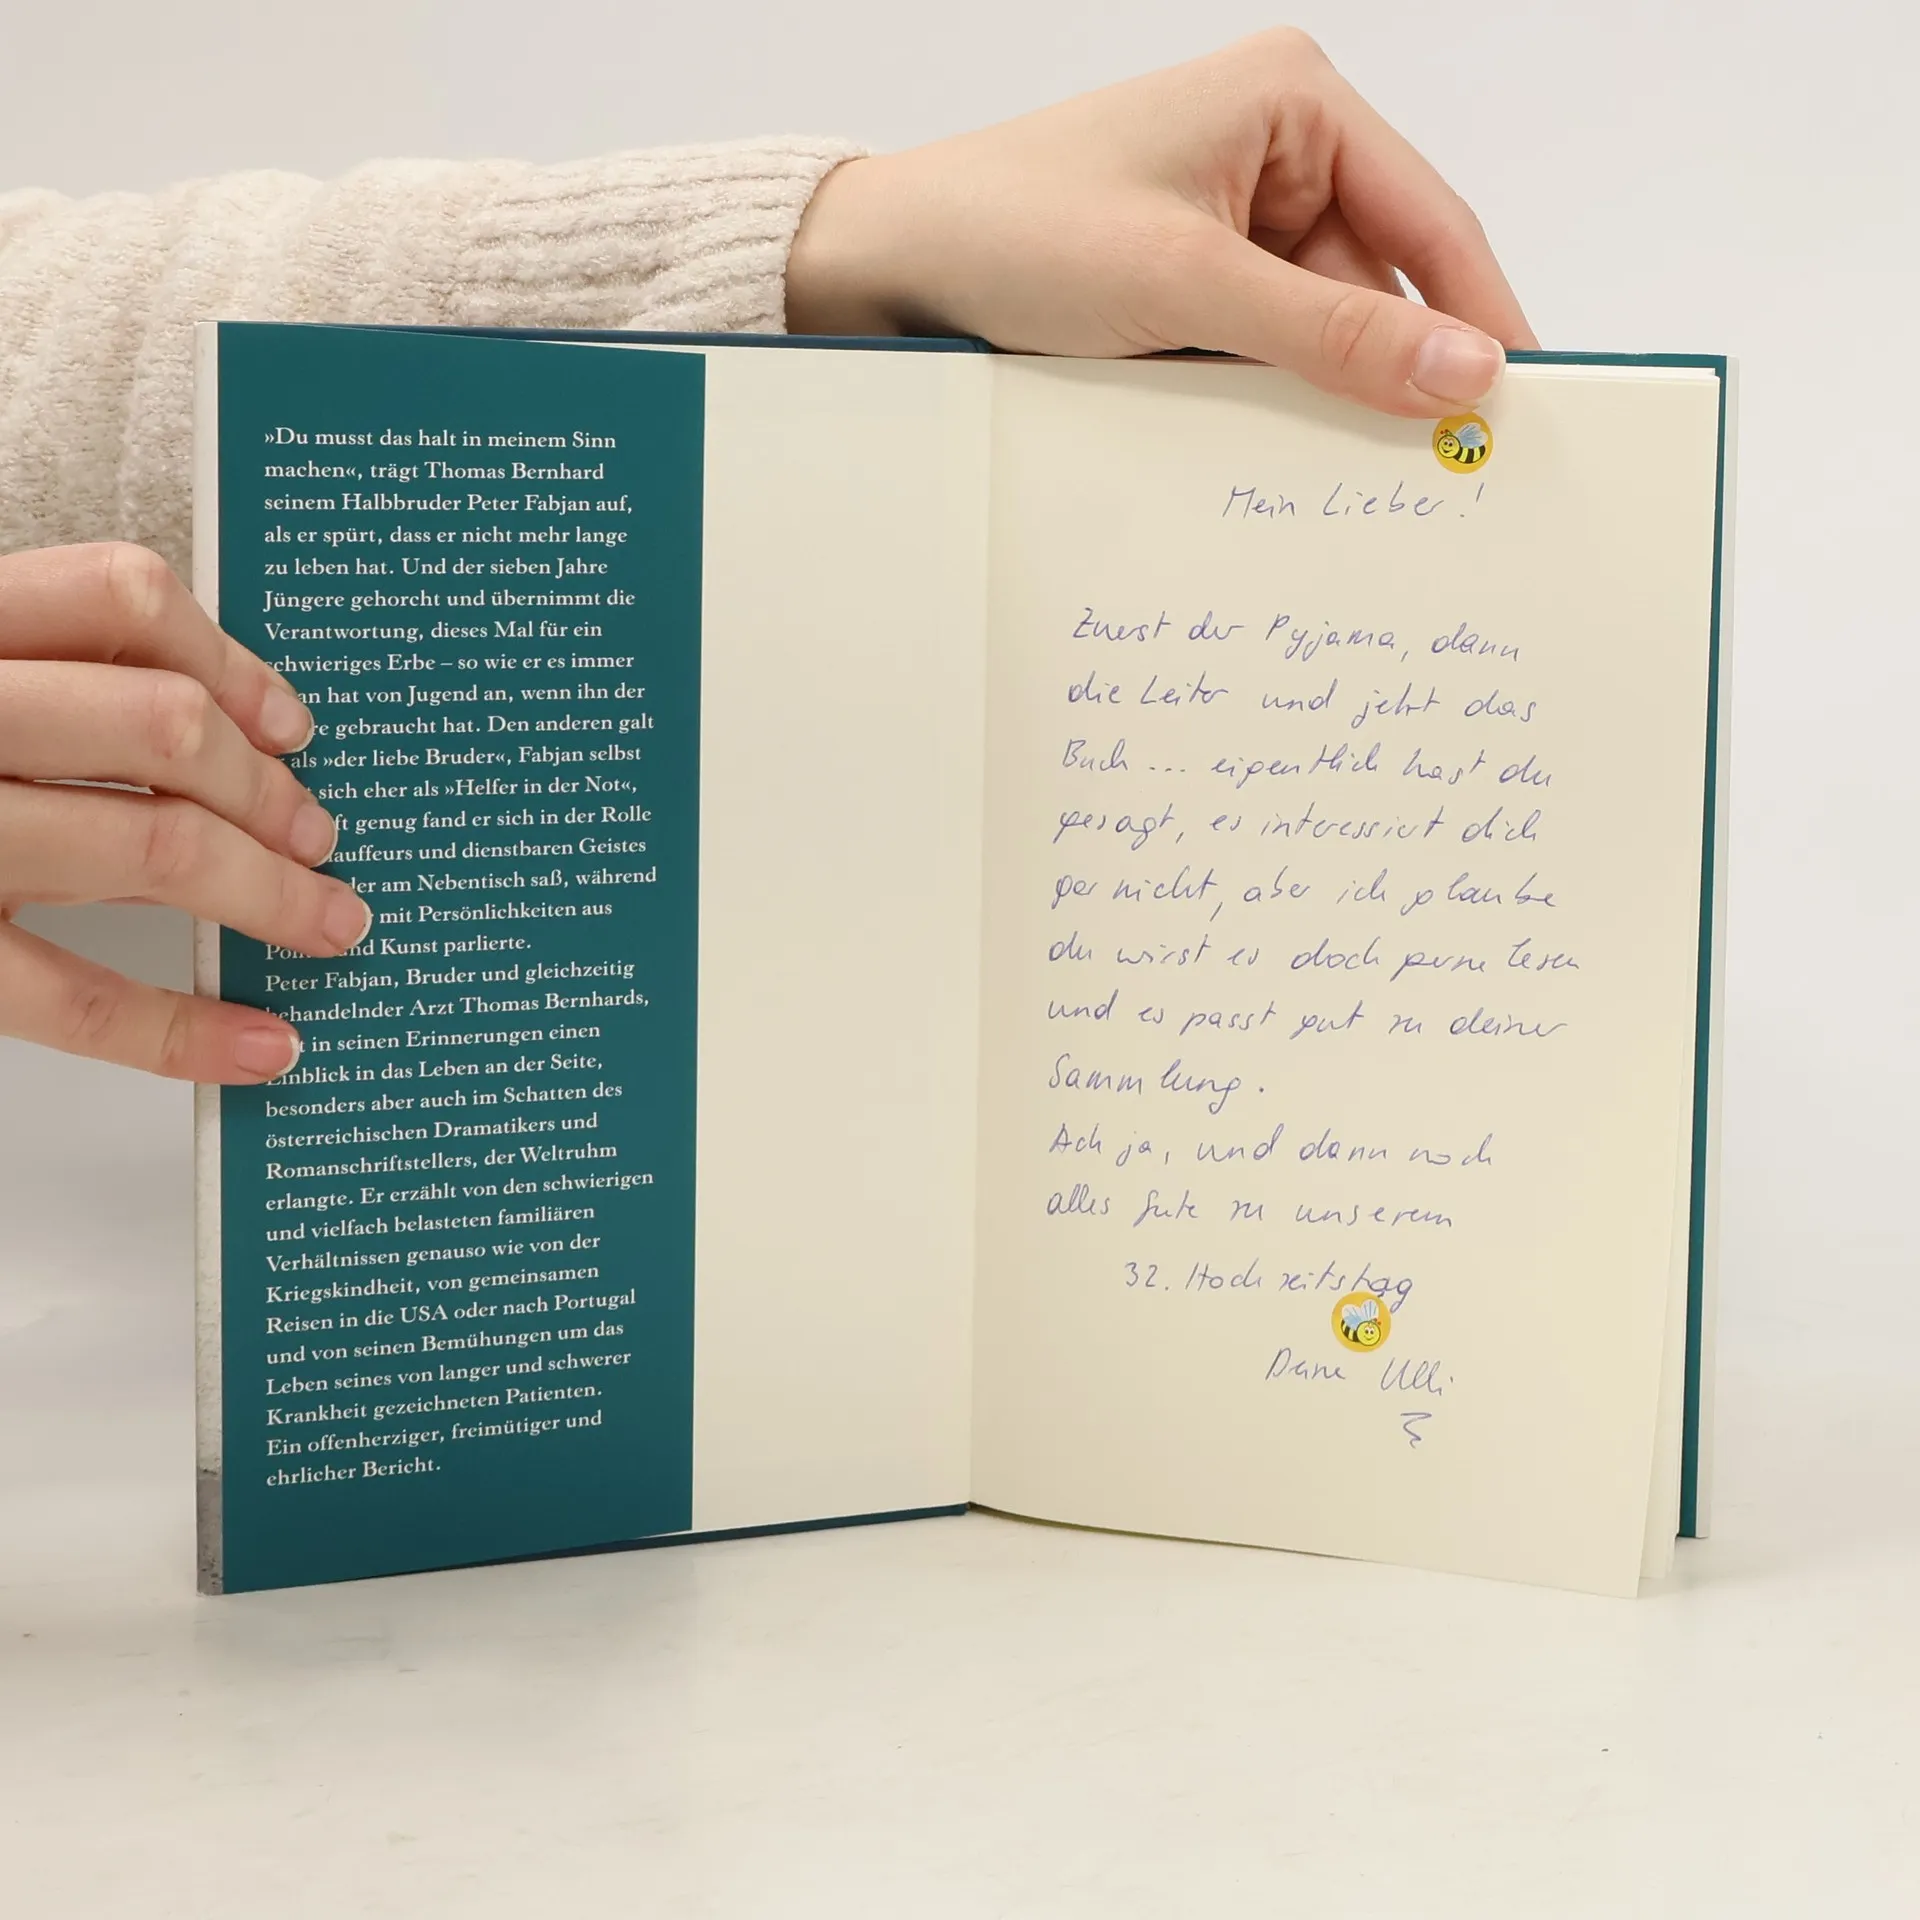 »Du musst das halt in meinem Sinn
machen«, trägt Thomas Bernhard
seinem Halbbruder Peter Fabjan auf,
als er spürt, dass er nicht mehr lange
zu leben hat. Und der sieben Jahre
Jüngere gehorcht und übernimmt die
Verantwortung, dieses Mal für ein
schwieriges Erbe – so wie er es immer
hat von Jugend an, wenn ihn der
gebraucht hat. Den anderen galt
als »der liebe Bruder«, Fabjan selbst
sich eher als »Helfer in der Not«,
genug fand er sich in der Rolle
und dienstbaren Geistes
am Nebentisch saß, während
mit Persönlichkeiten aus
Kunst parlierte.
Peter Fabjan, Bruder und gleichzeitig
behandelnder Arzt Thomas Bernhards,
in seinen Erinnerungen einen
Einblick in das Leben an der Seite,
besonders aber auch im Schatten des
österreichischen Dramatikers und
Romanschriftstellers, der Weltruhm
erlangte. Er erzählt von den schwierigen
und vielfach belasteten familiären
Verhältnissen genauso wie von der
Kriegskindheit, von gemeinsamen
Reisen in die USA oder nach Portugal
und von seinen Bemühungen um das
Leben seines von langer und schwerer
Krankheit gezeichneten Patienten.
Ein offenherziger, freimütiger und
ehrlicher Bericht.
Mein Lieber!
Zuerst der Pyjama, dann
die Leiter und jetzt das
Buch ... eigentlich hast du
gesagt, es interessiert dich
gar nicht, aber ich glaube
du wirst es doch gerne lesen
und es passt gut zu deiner
Sammlung.
Ach ja, und dann noch
alles Gute zu unserem
32. Hochzeitstag
Deine Ulli